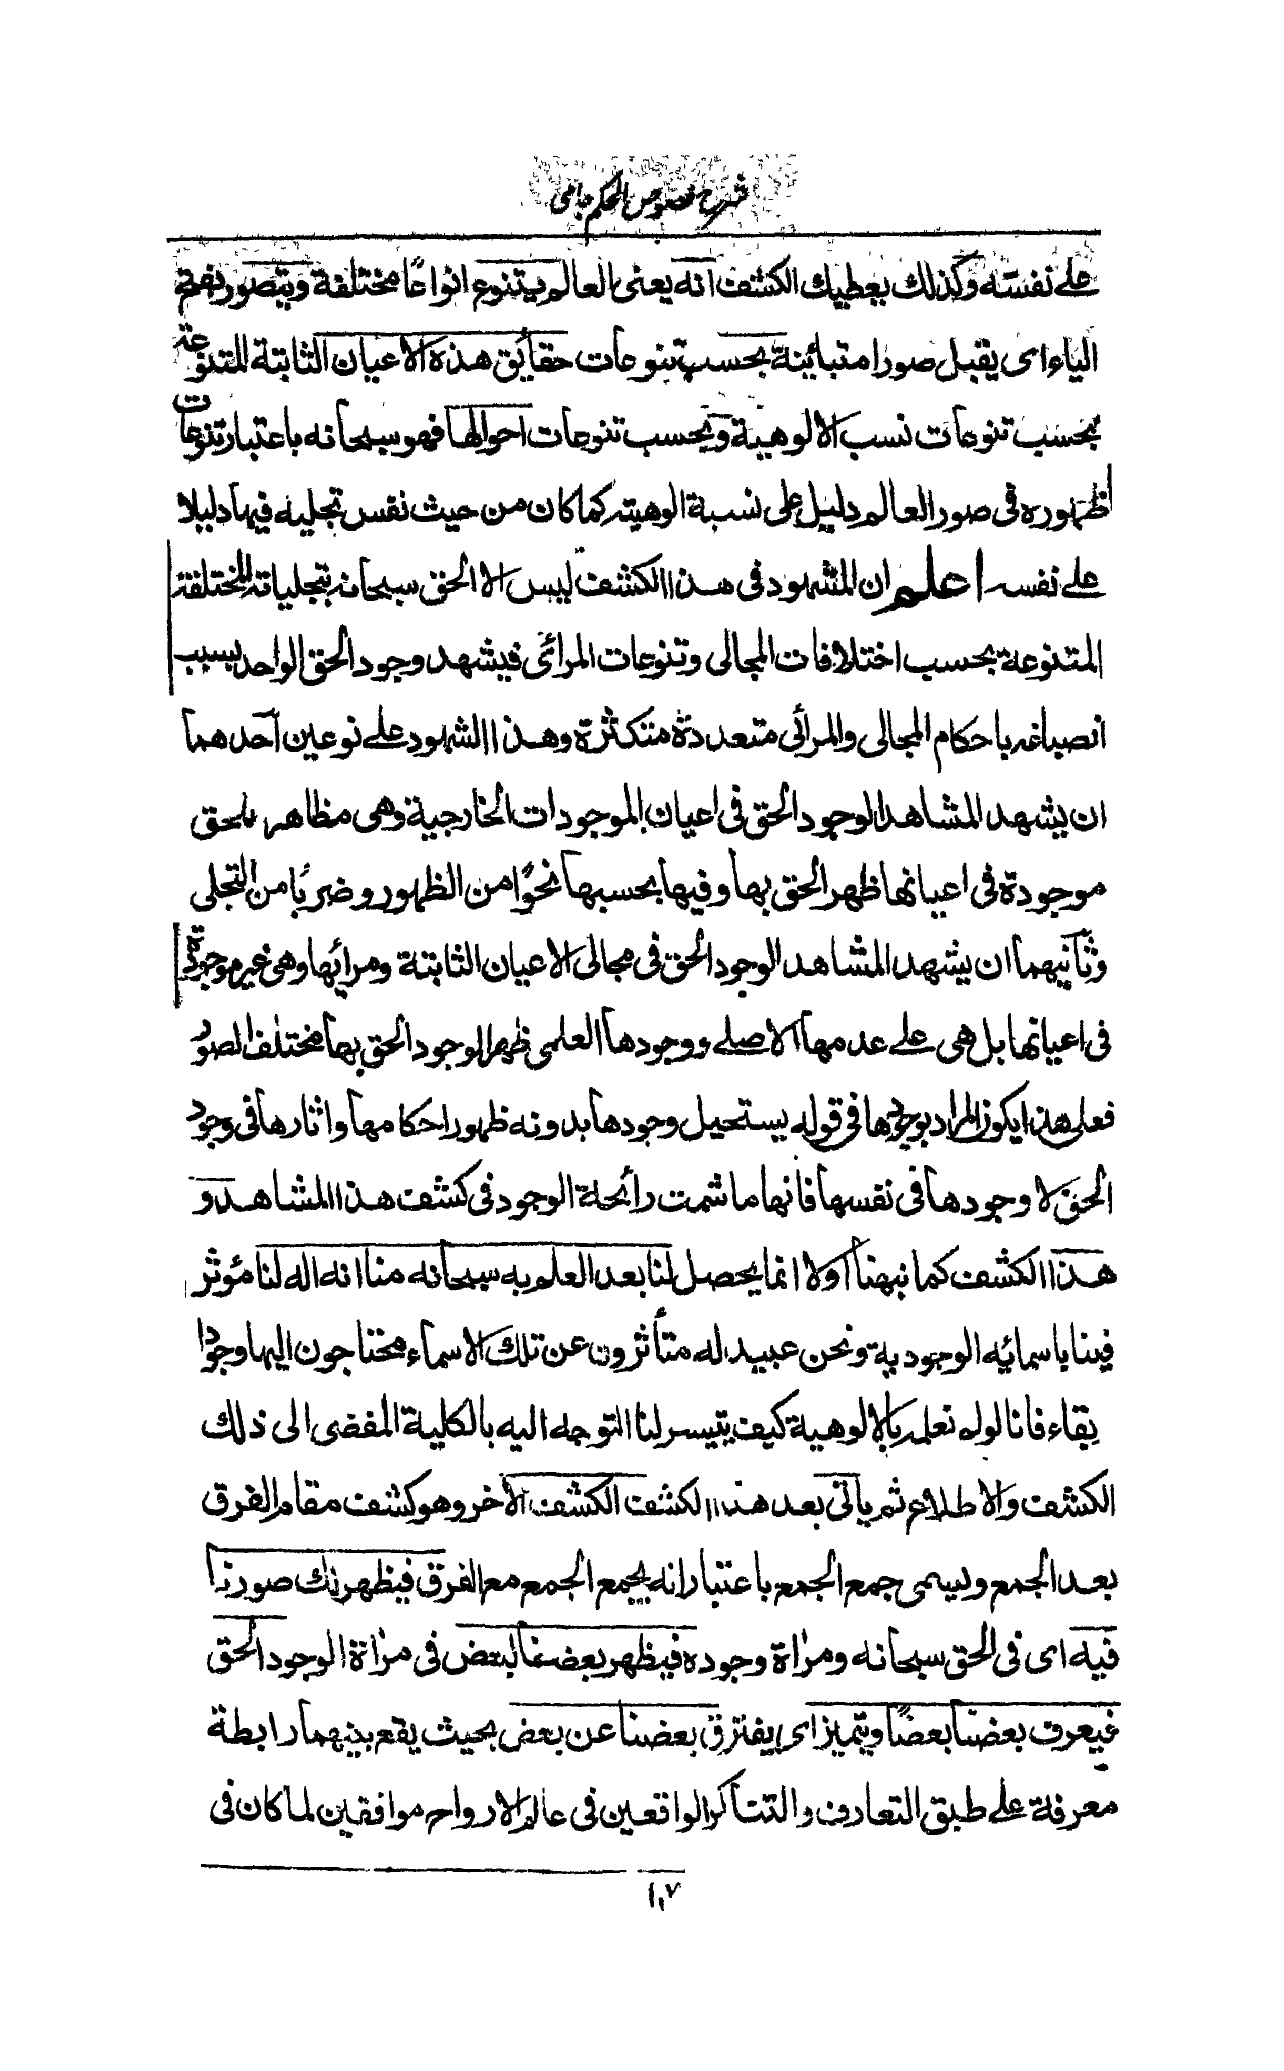 شرح فصوص الحكم جامى
على نفسه وكذلك يعطيك الكشف انه يعنى العالم يتنوع انواعًا مختلفة ويتصور بفتح
الياء اى يقبل صورا متبائنة بحسب تنوعات حقائق هذه الاعيان الثابتة المتنوعة
بحسب تنوعات نسب الالوهية وبحسب تنوعات احوالها فهو سبحانه باعتبار تنوعات
ظهوره فى صور العالم دليل على نسبة الوهيته كما كان من حيث نفس تجليه فيها دليلا
على نفسه اعلم ان المشهود فى هذا الكشف ليس الا الحق سبحانه بتجلياته المختلفة
المتنوعة بحسب اختلافات المجالى وتنوعات المرائى فيشهد وجود الحق الواحد بسبب
انصباغه باحكام المجالى والمرائى متعددة متكثرة وهذا الشهود على نوعين احدهما
ان يشهد المشاهد الوجود الحق فى اعيان الموجودات الخارجية وهى مظاهر للحق
موجودة فى اعيانها ظهر الحق بها وفيها بحسبها نحوًا من الظهور وضربًا من التجلى
وثانيهما ان يشهد المشاهد الوجود الحق فى مجالى الاعيان الثابتة ومرائها وهى غير موجودة
فى اعيانها بل هى على عدمها الاصلى ووجودها العلمى ظهر الوجود الحق بها مختلف الصور
فعلى هذا يكون المراد بوجودها فى قوله يستحيل وجودها بدونه ظهور احكامها واثارها فى وجود
الحق لا وجودها فى نفسها فانها ما شمت رائحة الوجود فى كشف هذا المشاهد و
هذا الكشف كما نبهنا اولا انما يحصل لنا بعد العلم به سبحانه منا انه اله لنا مؤثر
فينا باسمائه الوجودية ونحن عبيد له متأثرون عن تلك الاسماء محتاجون اليها وجودا
بقاء فانا لو لم نعلمه بالالوهية كيف يتيسر لنا التوجه اليه بالكلية المفضى الى ذلك
الكشف والاطلاع ثم ياتى بعد هذا الكشف الكشف الاخر وهو كشف مقام الفرق
بعد الجمع ويسمى جمع الجمع باعتبار انه يجمع الجمع مع الفرق فيظهر لك صورنا
فيه اى فى الحق سبحانه ومراة وجوده فيظهر بعضنا لبعض فى مراة الوجود الحق
فيعرف بعضنا بعضًا ويتميز اى يفترق بعضنا عن بعض بحيث يقع بينهما رابطة
معرفة على طبق التعارف والتناكر الواقعين فى عالم الارواح موافقين لما كان فى
١٠٧